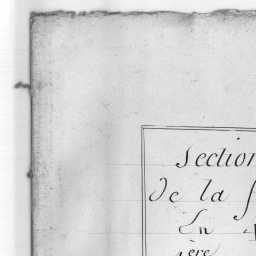 Section
De la
En
1ère